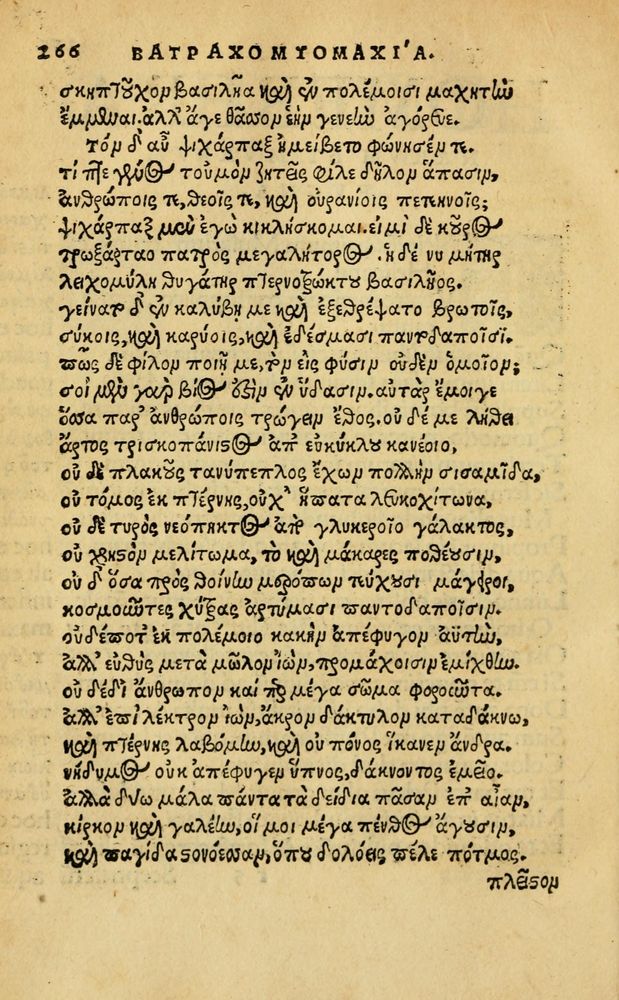 266 ΒΑΤΡΑΧΟΜΥΟΜΑΧΙ´Α.
σκηπτοῦχον βασιλῆα καὶ ἐν πολέμοισι μαχητὴν
ἔμμεναι. ἀλλ' ἄγε θᾶσσον ἑὴν γενεὴν ἀγόρευε.
Τὸν δ' αὖ ψιχάρπαξ ἠμείβετο φώνησέν τε.
τίπτε γένος τοὐμὸν ζητεῖς φίλε δῆλον ἅπασιν,
ἀνθρώποις τε, θεοῖς τε, καὶ οὐρανίοις πετηνοῖς;
ψιχάρπαξ μὲν ἐγὼ κικλήσκομαι. εἰμὶ δὲ κοῦρος
τρωξάρταο πατρὸς μεγαλήτορος. ἡ δέ νυ μήτηρ
λειχομύλη θυγάτηρ πτερνοτρώκτου βασιλῆος.
γείνατο δ' ἐν καλύβῃ με καὶ ἐξεθρέψατο βρωτοῖς,
σύκοις, καὶ καρύοις, καὶ ἐδέσμασι παντοδαποῖσι.
πῶς δὲ φίλον ποιῇ με, τὸν εἰς φύσιν οὐδὲν ὁμοῖον;
σοὶ μὲν γὰρ βίος ἐστὶν ἐν ὕδασιν. αὐτὰρ ἔμοιγε
ὅσσα παρ' ἀνθρώποις τρώγειν ἔθος. οὐδέ με λήθει
ἄρτος τρισκοπάνιστος ἀπ' εὐκύκλου κανέοιο,
οὐδὲ πλακοῦς τανύπεπλος ἔχων πολλὴν σισαμῖδα,
οὐ τόμος ἐκ πτέρνης, οὐχ' ἥπατα λευκοχίτωνα,
οὐδὲ τυρὸς νεόπηκτος ἀπὸ γλυκεροῖο γάλακτος,
οὐ χρηστὸν μελίτωμα, τὸ καὶ μάκαρες ποθέουσιν,
οὐδ' ὅσα πρὸς θοίνην μερόπων τεύχουσι μάγειροι,
κοσμοῦντες χύτρας ἀρτύμασι παντοδαποῖσιν.
οὐδέποτ' ἐκ πολέμοιο κακὴν ἀπέφυγον ἀϋτὴν,
ἀλλ' εὐθὺς μετὰ μῶλον ἰὼν, προμάχοισιν ἐμίχθην.
οὐ δέδι' ἄνθρωπον καί περ μέγα σῶμα φοροῦντα.
ἀλλ' ἐπὶ λέκτρον ἰὼν, ἄκρον δάκτυλον καταδάκνω,
καὶ πτέρνης λαβόμην, καὶ οὐ πόνος ἵκανεν ἄνδρα.
νήδυμος οὐκ ἀπέφυγεν ὕπνος, δάκνοντος ἐμεῖο.
ἀλλὰ δύω μάλα πάντα τὰ δείδια πᾶσαν ἐπ' αἶαν,
κίρκον καὶ γαλέην, οἵ μοι μέγα πένθος ἄγουσιν,
καὶ παγίδα στονόεσσαν, ὅπου δολόεις πέλε πότμος.
πλεῖστον